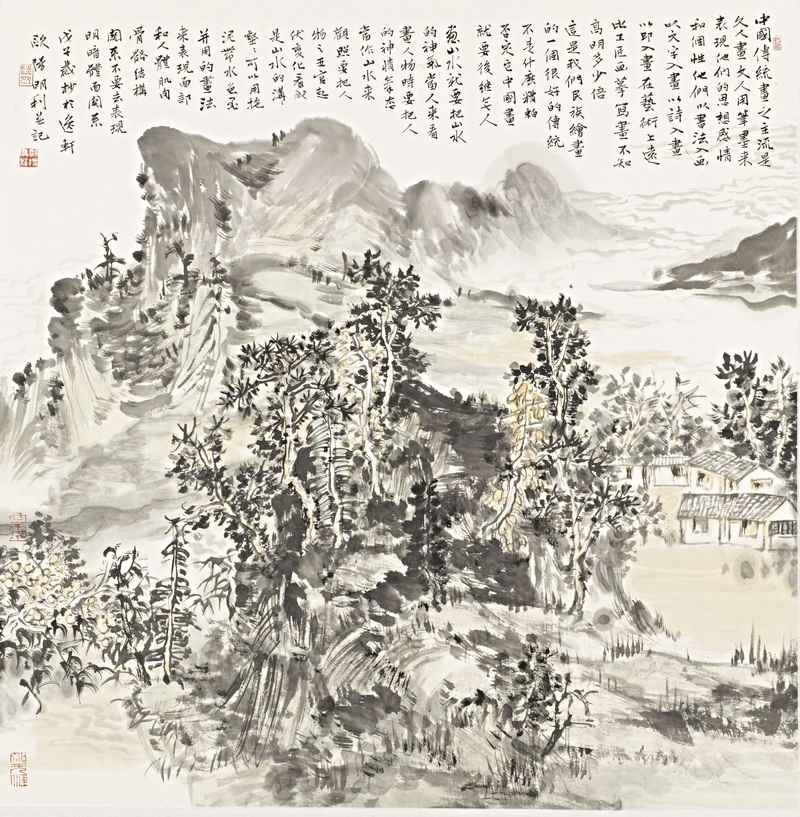 中國傳統畫之主流是
文人畫文人用筆墨來
表現他们的思想感情
和個性他們以書法入画
以文字入畫以詩入畫
以印入畫在藝術上遠
比工匠画摹寫畫不知
高明多少倍
這是我們民族繪畫
的一個很好的傳統
不是什麽糟粕
否定它中國畫
就要後继乏人
畫山水就要把山水
的神氣當人来看
畫人物時要把人
的神情氣态
當作山水来
觀照要把人
物之五官起
伏变化看做
是山水的溝
壑可以用拖
泥帶水皂白
并用的畫法
來表現面部
和人體肌肉
骨骼結構
関系不要去表現
明暗體面関系
戊子歲抄於逸軒
歐陽明利并記